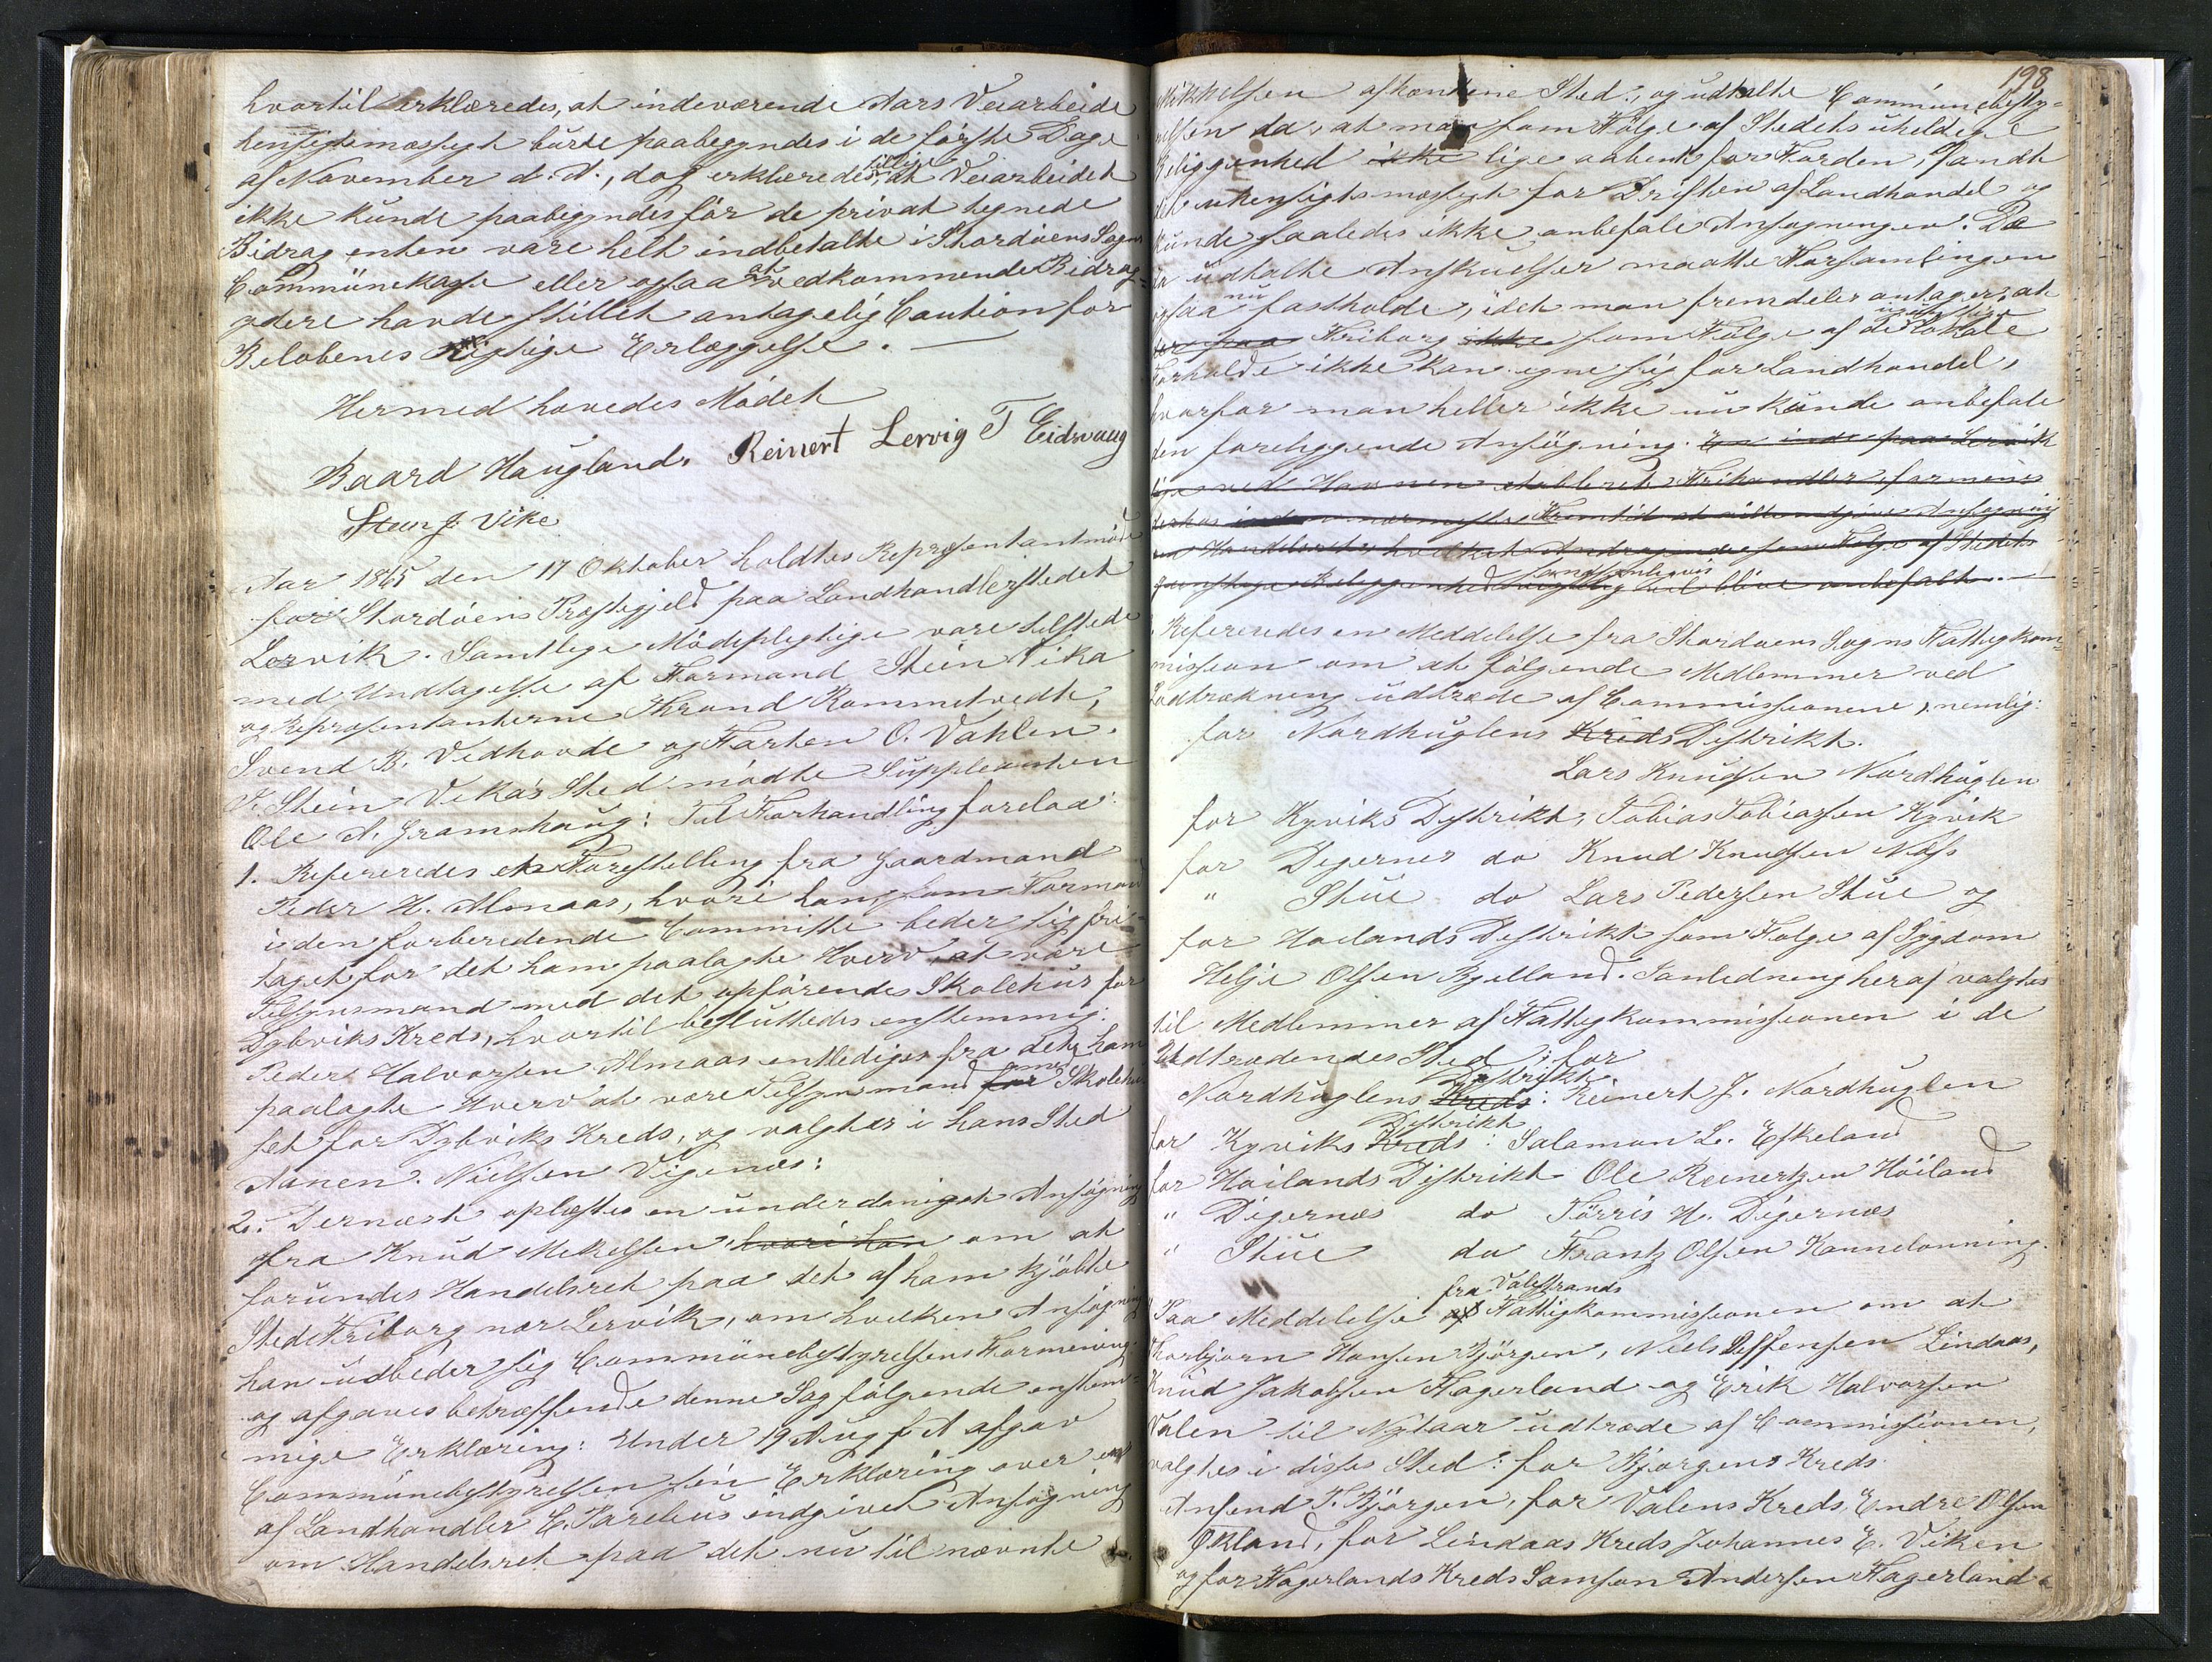 hvortil erklæredes, at indeværende Aars Veiarbeide
hensigtsmæssigt burde paabegyndes i de første Dage
af November d. A., dog erklæredes tillige, at Veiarbeidet
ikke kunde paabegyndes før de privat tegnede
Bidrag enten vare helt indbetalte i Stordöens Sogns
Commünekasse eller ogsaa at vedkommende Bidrag-
ydere havde stillet antagelig Caution for
Belöbenes rigtige Erlæggelse. —
Hermed hævedes Mödet
Baard Haugland. Reinert Lervig T Eidsvaag
Stein J. Vike
Aar 1865 den 17 Oktober holdtes Repræsentantmøde
for Stordöens Præstegjeld paa Landhandlerstedet
Lervik. Samtlige Mödepligtige vare tilstede
med Undtagelse af Formand Stein Vika
og Repræsentanterne Thrond Rommetvedt,
Svend B. Vedhovde og Torben O. Vahlen.
I Stein Vikas Sted mödte Suppleanten
Ole A. Gramshaug: Til Forhandling forelaa:
1. Refereredes en Forestilling fra Gaardmand
Peder H. Almaas, hvori han som Formand
i den forberedende Committe beder sig fri-
taget for det ham paalagte Hverv, at være
Tilsynsmand med det opförendes Skolehus for
Dybviks Kreds, hvortil besluttedes enstemmig:
Peder Halvorsen Almaas entlediges fra det ham
paalagte Hverv at være Tilsynsmand for med Skolehu-
set for Dybviks Kreds, og valgtes i hans Sted
Aanen Nielsen Vigenæs:
2. Dernæst oplæstes en underdanigst Ansögning
fra Knud Mikelsen hvori han om at
forundes Handelsret paa det af ham kjöbte
Sted Friborg nær Lervik, om hvilken Ansögning
han udbeder sig Communebestyrelsens Formening.
og afgaves betræffende denne Sag fölgende enstem-
mige Erklæring: Under 19 Aug f A afgav
Communebestyrelsen sin Erklæring over en
af Landhandler E. indgivet Ansögning
om Handelsret paa det nu til nævnte
198
Mikkelsen afhændene Sted, og udtalte Communebesty-
relsen da, at man som Fölge af Stedets uheldige
Beliggenhed ikke lige aabent for Fjorden, fandt
det uhensigtsmæssigt for Driften af Landhandel og
kunde saaledes ikke anbefale Ansögningen. De
da udtalte Anskuelser maatte Forsamlingen
ogsaa nu fastholde, idet man fremdeles antager, at
Friborg ikke som Fölge af de Lokale
Forholde ikke kan egne sig for Landhandel,
hvorfor man heller ikke nu kunde anbefale
den foreliggende Ansögning. En inde paa Lervik
lige ved Havnen etableret Frihandler, formenes
derhos inden nærmeste Fremtid at ville indgive Ansögning
om Handelsret, hvilket Andragende som Fölge af Stedets
gunstige Beliggenhed sandsynligvis vil blive anbefalt. —
Refereredes en Meddelelse fra Stordöens Sogns Fattigkom-
mission om at fölgende Medlemmer ved
Lodtrækning udtræde af Commissionene, nemlig:
for Nordhuglens Kreds Distrikt.
Lars Knudsen Nordhuglen
for Kyviks Distrikt, Tobias Tobiassen Kyvik
for Digernes do Knud Knudsen Næss
" Stue do Lars Pedersen Stue og
for Hoilands Distrikt som Fölge af Sygdom
Helje Olsen Bjelland. I anledning heraf valgtes
til Medlemmer af Fattigkommissionen i de
Udtrædendes Sted for
Nordhuglens Kreds Distrikt: Reinert J. Nordhuglen
for Kyviks Kreds Distrikt: Salamon L. Eskeland
for Höilands Distrikt Ole Reinertsen Höiland
" Digernæs do Törris H. Digernæs
" Stue do Frantz Olsen Kannelönning.
Paa Meddelelse af fra Valestrands Fattigkommissionen om at
Thorbjørn Hansen Bjørgen, Niels Steffensen Lindaas,
Knud Jakobsen Fagerland og Erik Halvorsen
Valen til Nytaar udtræde af Commissionen,
valgtes i disses Sted: for Bjørgens Kreds
Ansend T. Bjørgen, for Valens Kreds, Endre Olsen
Økland, for Lindaas Kreds Johannes E. Viken
og for Fagerlands Kreds Samson Andersen Fagerland